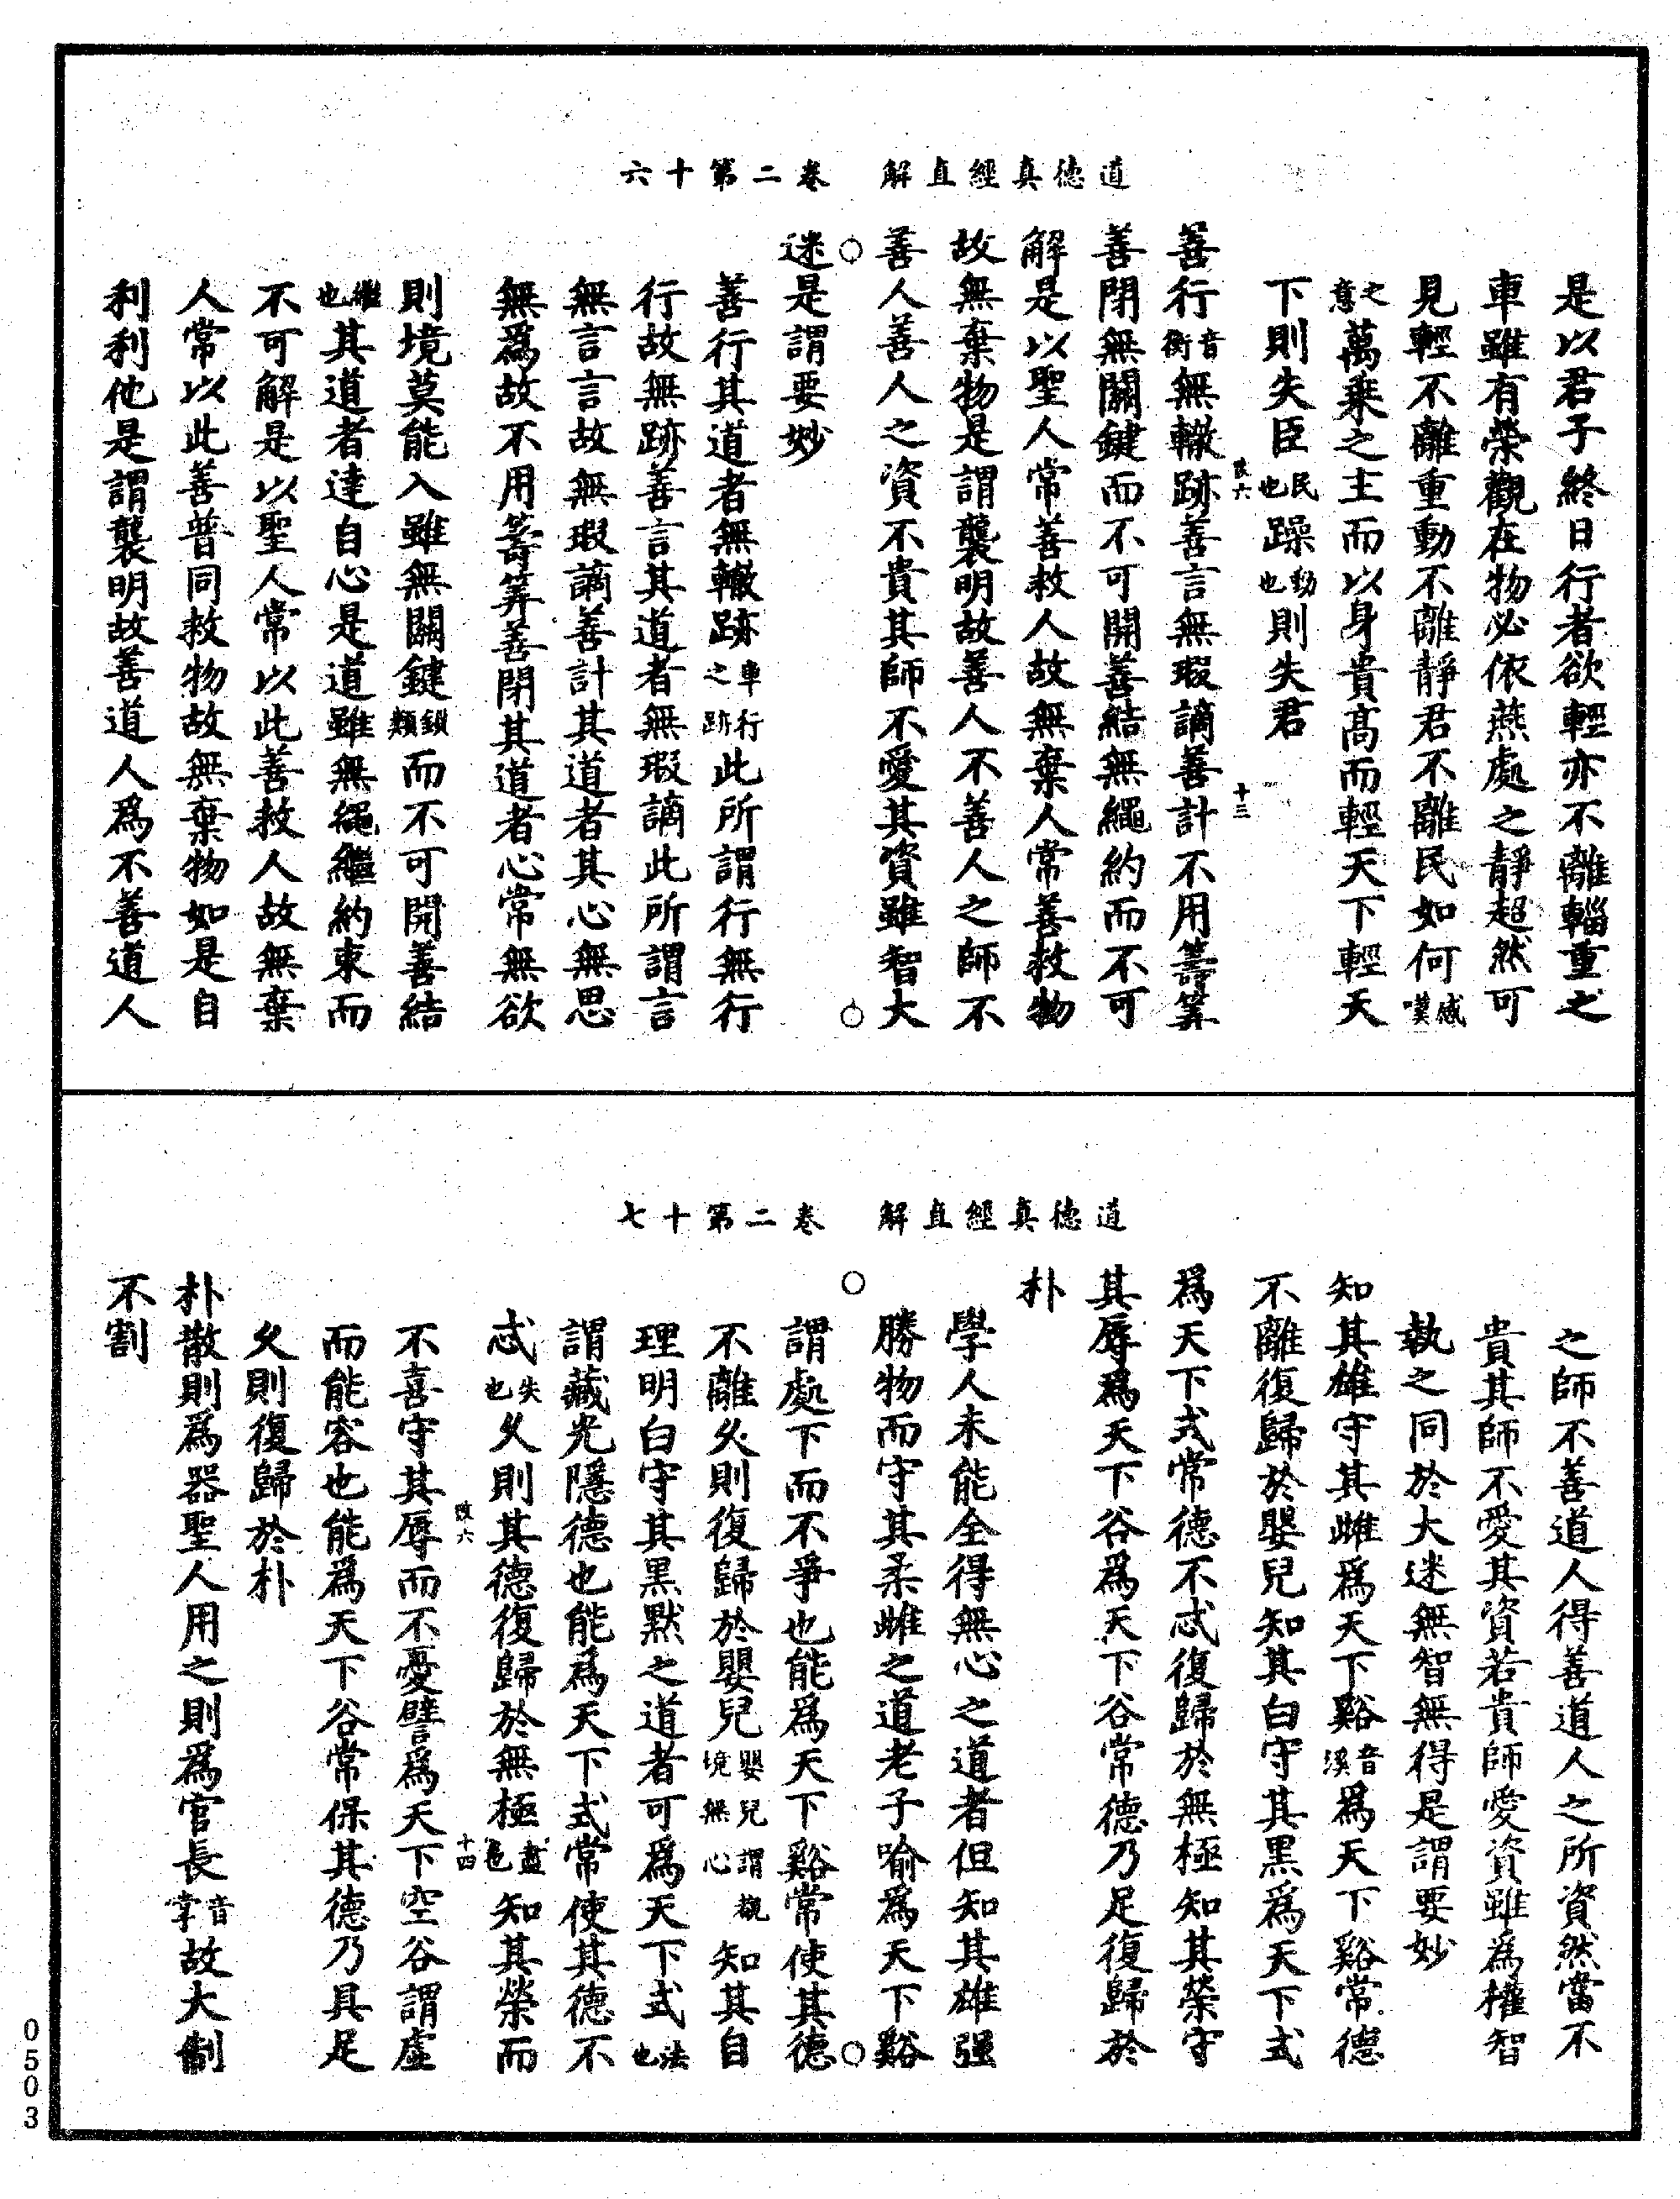 道德真經直解　卷二第十六
是以君子終日行者欲輕亦不離輜重之
車雖有榮觀在物必依燕處之靜超然可
見輕不離重動不離靜君不離民如何感嘆
之意萬乗之主而以身貴高而輕天下輕天
下則失臣民也躁動也則失君
改六　十三
善行音衡無轍跡善言無瑕謫善計不用籌筭
善閉無關鍵而不可開善結無繩約而不可
解是以聖人常善救人故無棄人常善救物
故無棄物是謂襲明故善人不善人之師不
善人善人之資不貴其師不愛其資雖智大
迷是謂要妙
善行其道者無轍跡車行之跡此所謂行無行
行故無跡善言其道者無瑕謫此所謂言
無言言故無瑕謫善計其道者其心無思
無爲故不用籌筭善閉其道者心常無欲
則境莫能入雖無關鍵鎖類而不可開善結
繼也其道者達自心是道雖無繩繼約束而
不可解是以聖人常以此善救人故無棄
人常以此善普同救物故無棄物如是自
利利他是謂襲明故善道人爲不善道人
道德真經直解　卷二第十七
之師不善道人得善道人之所資然當不
貴其師不愛其資若貴師愛資雖爲權智
執之同於大迷無智無得是謂要妙
知其雄守其雌爲天下谿音溪爲天下谿常德
不離復歸於嬰兒知其白守其黒爲天下式
爲天下式常德不忒復歸於無極知其榮守
其辱爲天下谷爲天下谷常德乃足復歸於
朴
學人未能全得無心之道者但知其雄强
勝物而守其柔雌之道老子喻爲天下谿
謂處下而不爭也能爲天下谿常使其德
不離乆則復歸於嬰兒嬰兒謂觀境無心知其自
理明白守其黒黙之道者可爲天下式法也
謂藏光隱德也能爲天下式常使其德不
忒失也乆則其德復歸於無極知其榮而
改六　十四
不喜守其辱而不憂譬爲天下空谷謂虛
而能容也能爲天下谷常保其德乃具足
乆則復歸於朴
朴散則爲器聖人用之則爲官長音掌故大制
不割
0503